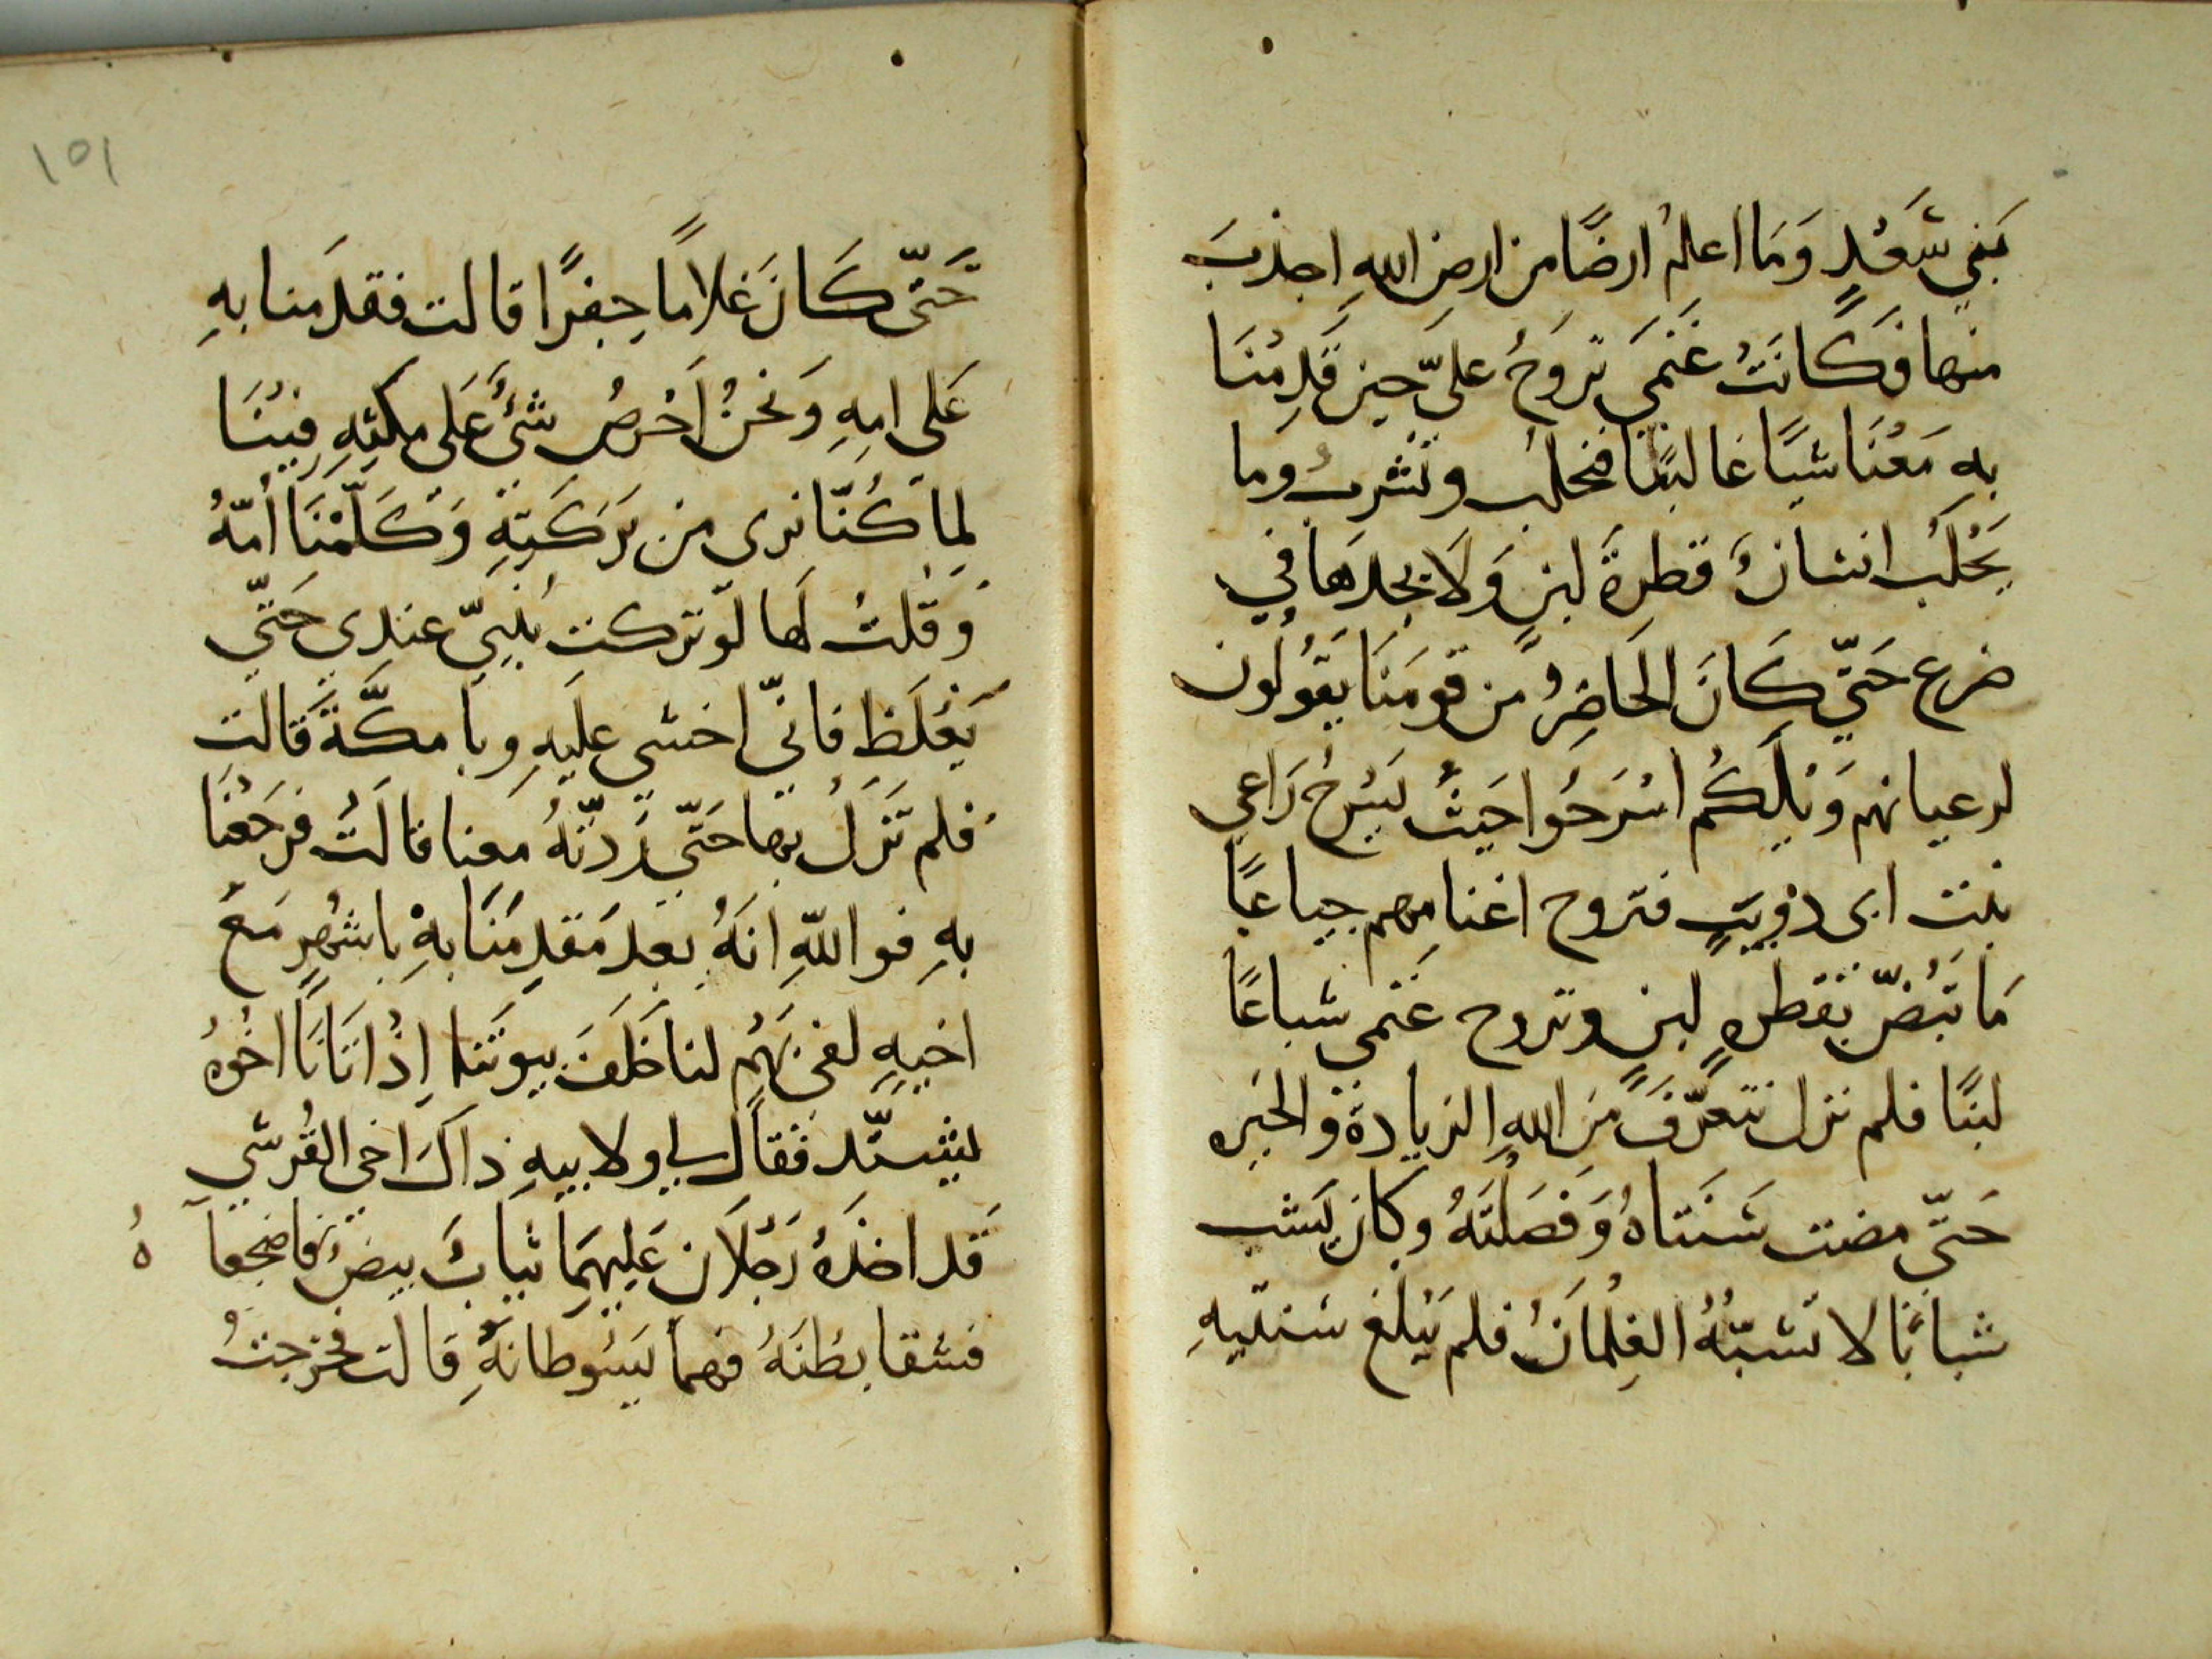 بَنِي سَّعْدٍ وَمَا اعلمُ ارضًا من ارضِ اللهِ اجدبَ
منها فَكَانَتْ غَنَمِي تروَحُ عليّ حين قَدِمْنَا
بهِ مَعْنَا شبَاعًا لبنًا فنحلب ونشرب وما
يَحْلبُ انسانٌ قطرةَ لبنٍ وَلَا يجدهَا في
ضرع حَتّي كَانَ الحَاضِرُ من قومَنَا يَقُولون
لرعيانهم وَيْلَكُم اسْرَحُوا حَيثُ يَسْرَحُ رَاعي
بنت ابى ذويبٍ فتروح اغنامهم جياعًا
مَا تَبُضّ بقطرهٍ لبنٍ وتروح غَنَمى شباعًا
لبنًا فلم نزل نتعرّفُ مِنَ اللهِ الزيادةَ والخيره
حَتّي مضت سَنَتاهُ وَفَصَلْتَهُ وكان يَشب
شبابًا لا تشبّهُ الغِلْمَانُ فلم يَبْلغ سنتيهِ
١٥١
حَتّى كَانَ غلامًا جفرًا قالت فقدمنا بهِ
عَلى امهِ وَنحنُ اَحْرصُ شئٍ عَلى مكثهِ فِيْنَا
لِمَا كُنّا نرى من بَرَكَتِهِ وَكَلَّمْنَا اُمّهُ
وَقلتُ لَها لَو تركتِ بُنَيّ عندِي حَتّي
يَغْلَظ فانّي اخشي عليَهِ وبا مكَّةَ قَالت
فلم نَزَلْ بها حَتّي رَدّتْهُ معنا قالَتْ فرَجَعْنَا
بهِ فواللهِ انهُ بعدَ مَقدِمنَا بهِ باشهُرٍ مَعَ
اخيهِ لفي بَهْمٍ لنا خَلَفَ بيوتنا اِذْ اتَانَا اخُوهُ
يشتدّ فقال لي ولابيهِ ذاكَ اخي القُرشي
قَد اخذَهُ رَجُلَانِ عَلَيهِمَا ثيابٌ بيضٌ فاضجعا هُ
فشقا بطْنَهُ فهما يَسُوطانهِ قالت فخرجتُ